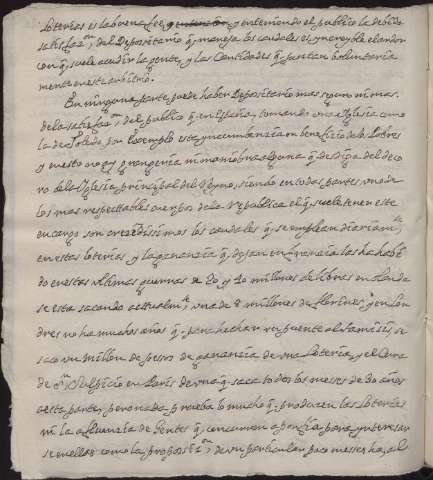 Loterias es la buena fee y enteniendo el publico la devida
satisfaz.on, del Depositario q. maneja los caudales es yncreyble el ardor
con q. suele acudir la gente, y las Cantidades q. juntan boluntaria
mente en este arbitrio.
En ninguna parte puede haber Depositario mas seguro ni mas
de la satisfaz.on del publico q. en España, tomando una Yglesia como
la de Toledo por Exemplo esta yncumbencia en beneficio de los Pobres
y en esto no ay grangeria ni maniobra alguna q. desdiga del deco
ro de la Yglesia principal del Reyno, siendo en todas partes uno de
los mas respectables cuerpos de la Republica el q. suele tener este
encargo son crezidissimos los caudales q. se emplean diariam.te
en estas loterias y la ganancia q. dejan en Francia las ha habi
do en estas ultimas guerras de 20 y 40 millones de libras en Olanda
se esta sacando actualm.te una de 8 millones de florines, y en Lon
dres no ha muchos años q. para hechar un puente al Tamesis, se
saco un millon de pesos de ganancia de una Loteria, y el Cura
de S.n Sulpicio en Paris de una q. saca todos los meses de 30 años
a esta parte, pero nada prueba lo mucho q. producen las Loterias
ni la afluencia de Gentes q. concurren a porfia para ynteresar
se en ellas como la proposiz.on de un particular poco meses ha, al